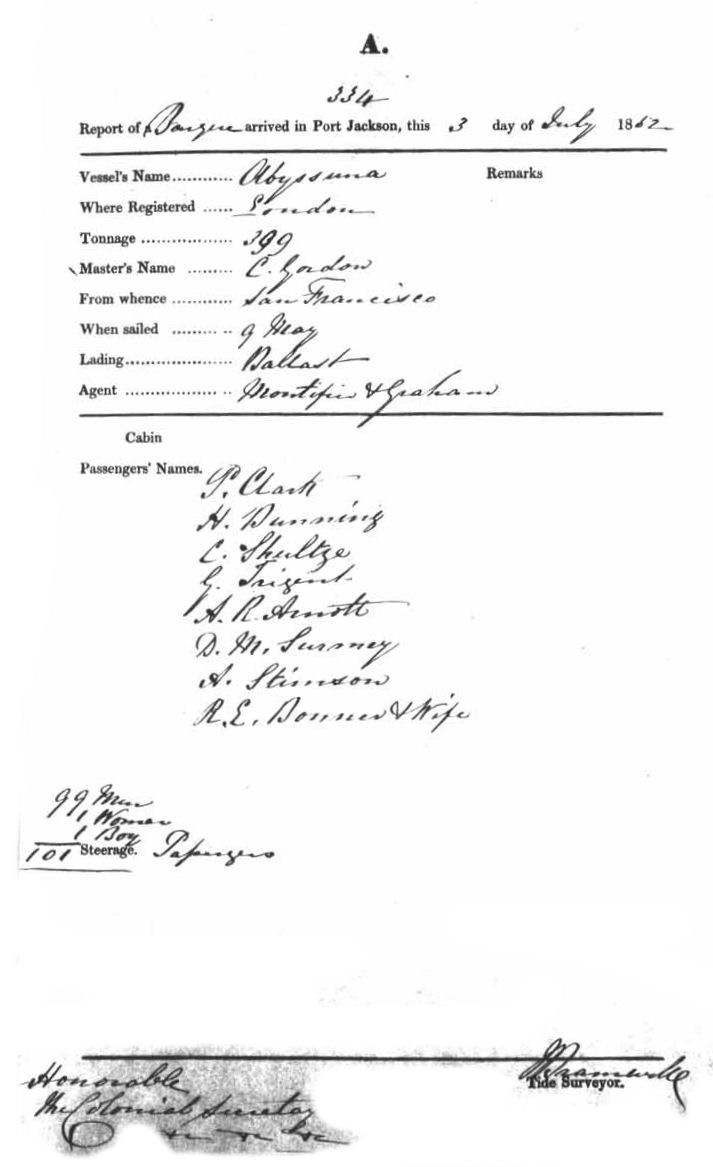 A.
334
Report of Barque arrived in Port Jackson, this 3 day of July 1852
Vessel's Name............ Abyssinia Remarks
Where Registered ...... London
Tonnage .................. 399
Master's Name ......... C. Gordon
From whence ............ San Francisco
When sailed ......... .. 9 May
Lading..................... Ballast
Agent .................. .. Montifie & Graham
Cabin
Passengers' Names.
P. Clark
H. Dunning
C. Shultze
G. Trigent
A. R. Arnott
D. M. Surmey
A. Stimson
R. E. Bonner & Wife
99 Men
1 Woman
1 Boy
101 Steerage. Passengers
Tide Surveyor.
Honorable
The Colonial Secretary
&c &c &c